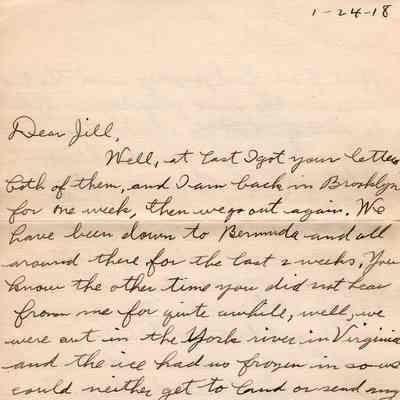 1-24-18
Dear Jill,
Well, at last I got your letters
both of them, and I am back in Brooklyn
for one week, then we go out again. We
have been down to Bermuda and all
around there for the last 2 weeks. You
know the other time you did not hear
from me for quite awhile, well, we
were out in the York river in Virginia
and the ice had us frozen in so we
could neither get to land or send any